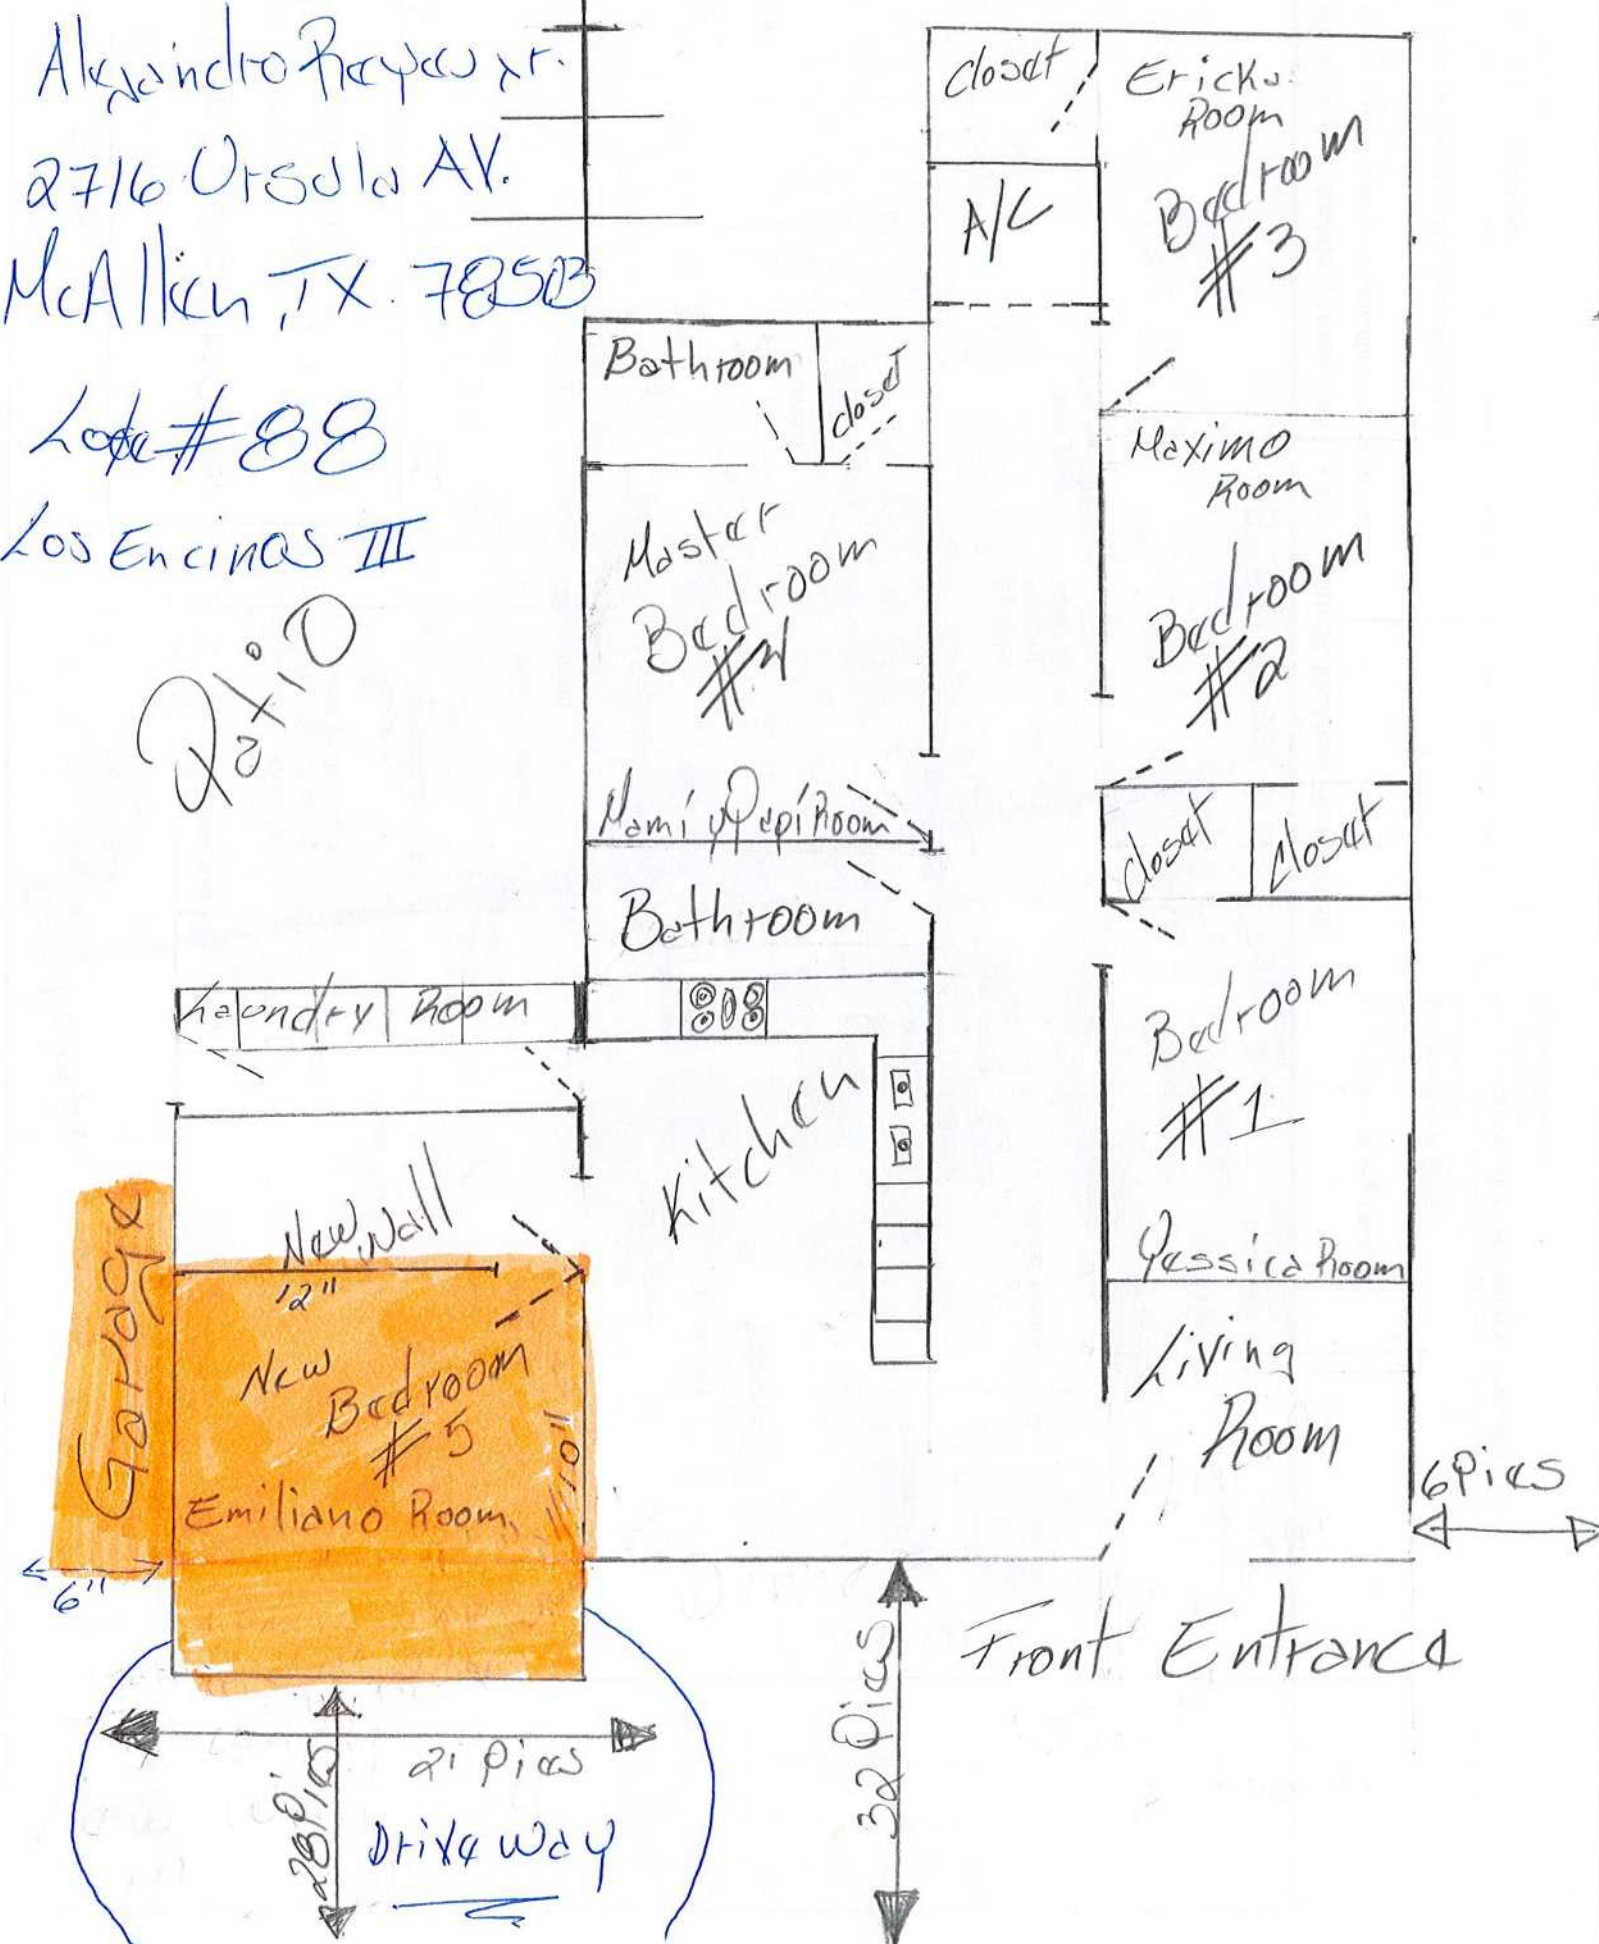 Alejandro Reyes Jr.
2716 Ursula AV.
McAllen, TX. 78503
Lote #88
Los Encinos III
Patio
closet
A/C
Ericks
Room
Bedroom
#3
Bathroom
closet
Maximo
Room
Bedroom
#2
Master
Bedroom
#4
Mami y Papi Room
closet
closet
Bathroom
Laundry Room
Kitchen
Bedroom
#1
Yessica Room
Living
Room
Garage
New Wall
12"
New
Bedroom
#5
10"
Emiliano Room
6"
6 Pies
Front Entrance
32 Pies
21 Pies
28 Pies
Drive Way